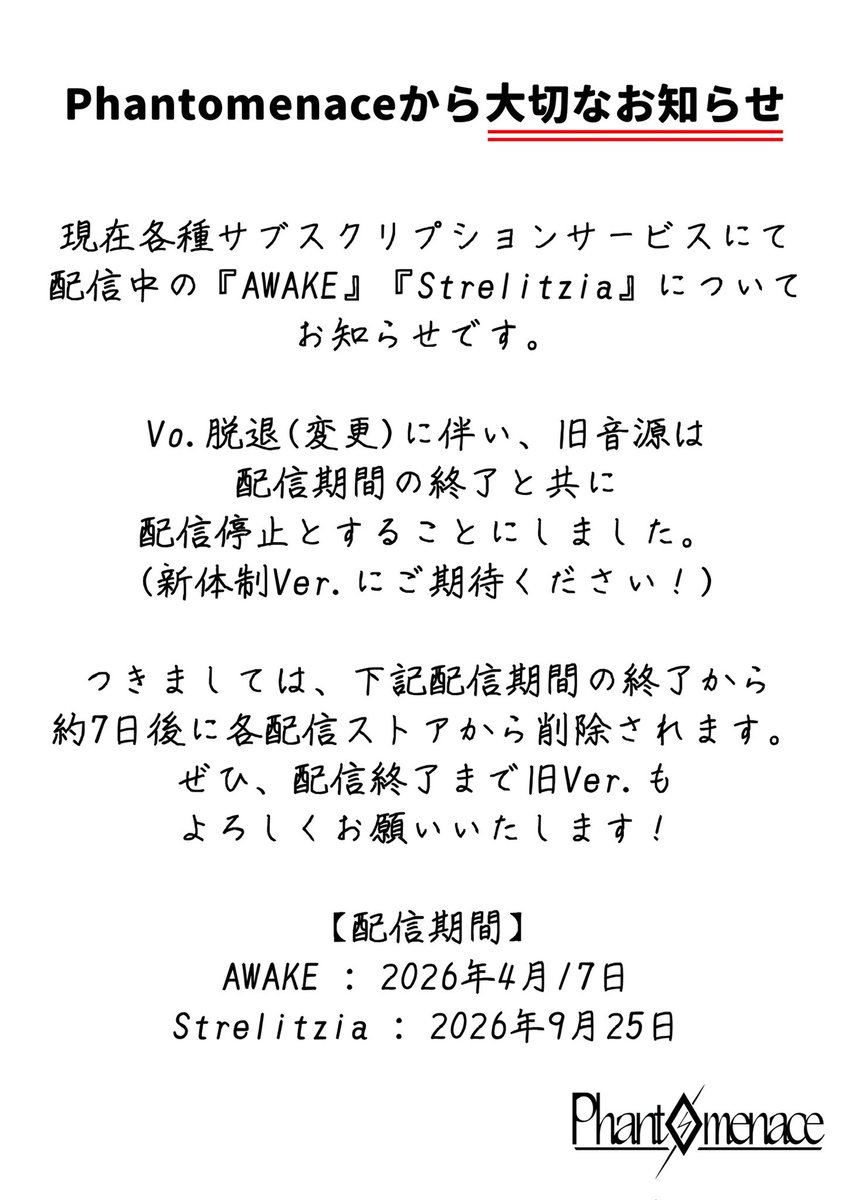 Phantomenaceから大切なお知らせ
現在各種サブスクリプションサービスにて
配信中の『AWAKE』『Strelitzia』について
お知らせです。
Vo.脱退(変更)に伴い、旧音源は
配信期間の終了と共に
配信停止とすることにしました。
(新体制Ver.にご期待ください！)
つきましては、下記配信期間の終了から
約7日後に各配信ストアから削除されます。
ぜひ、配信終了まで旧Ver.も
よろしくお願いいたします！
【配信期間】
AWAKE : 2026年4月17日
Strelitzia : 2026年9月25日
Phantomenace